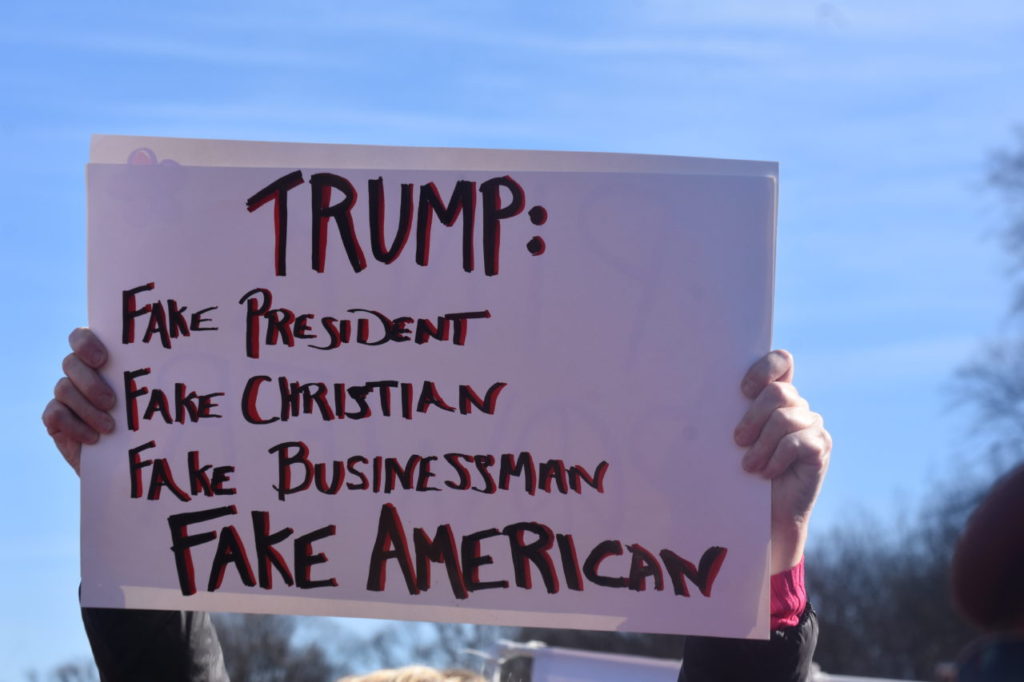 TRUMP:
FAKE PRESIDENT
FAKE CHRISTIAN
FAKE BUSINESSMAN
FAKE AMERICAN